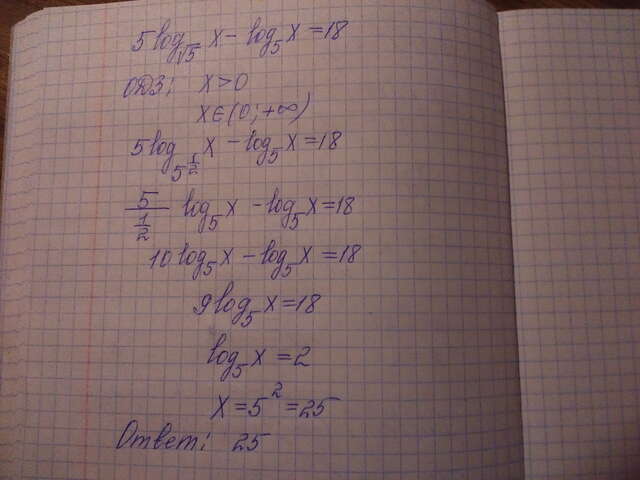 5log_{√5} x − log_5 x = 18
ОДЗ: x > 0
x ∈ (0; +∞)
5log_{5^{1/2}} x − log_5 x = 18
5/(1/2) log_5 x − log_5 x = 18
10log_5 x − log_5 x = 18
9log_5 x = 18
log_5 x = 2
x = 5^2 = 25
Ответ: 25